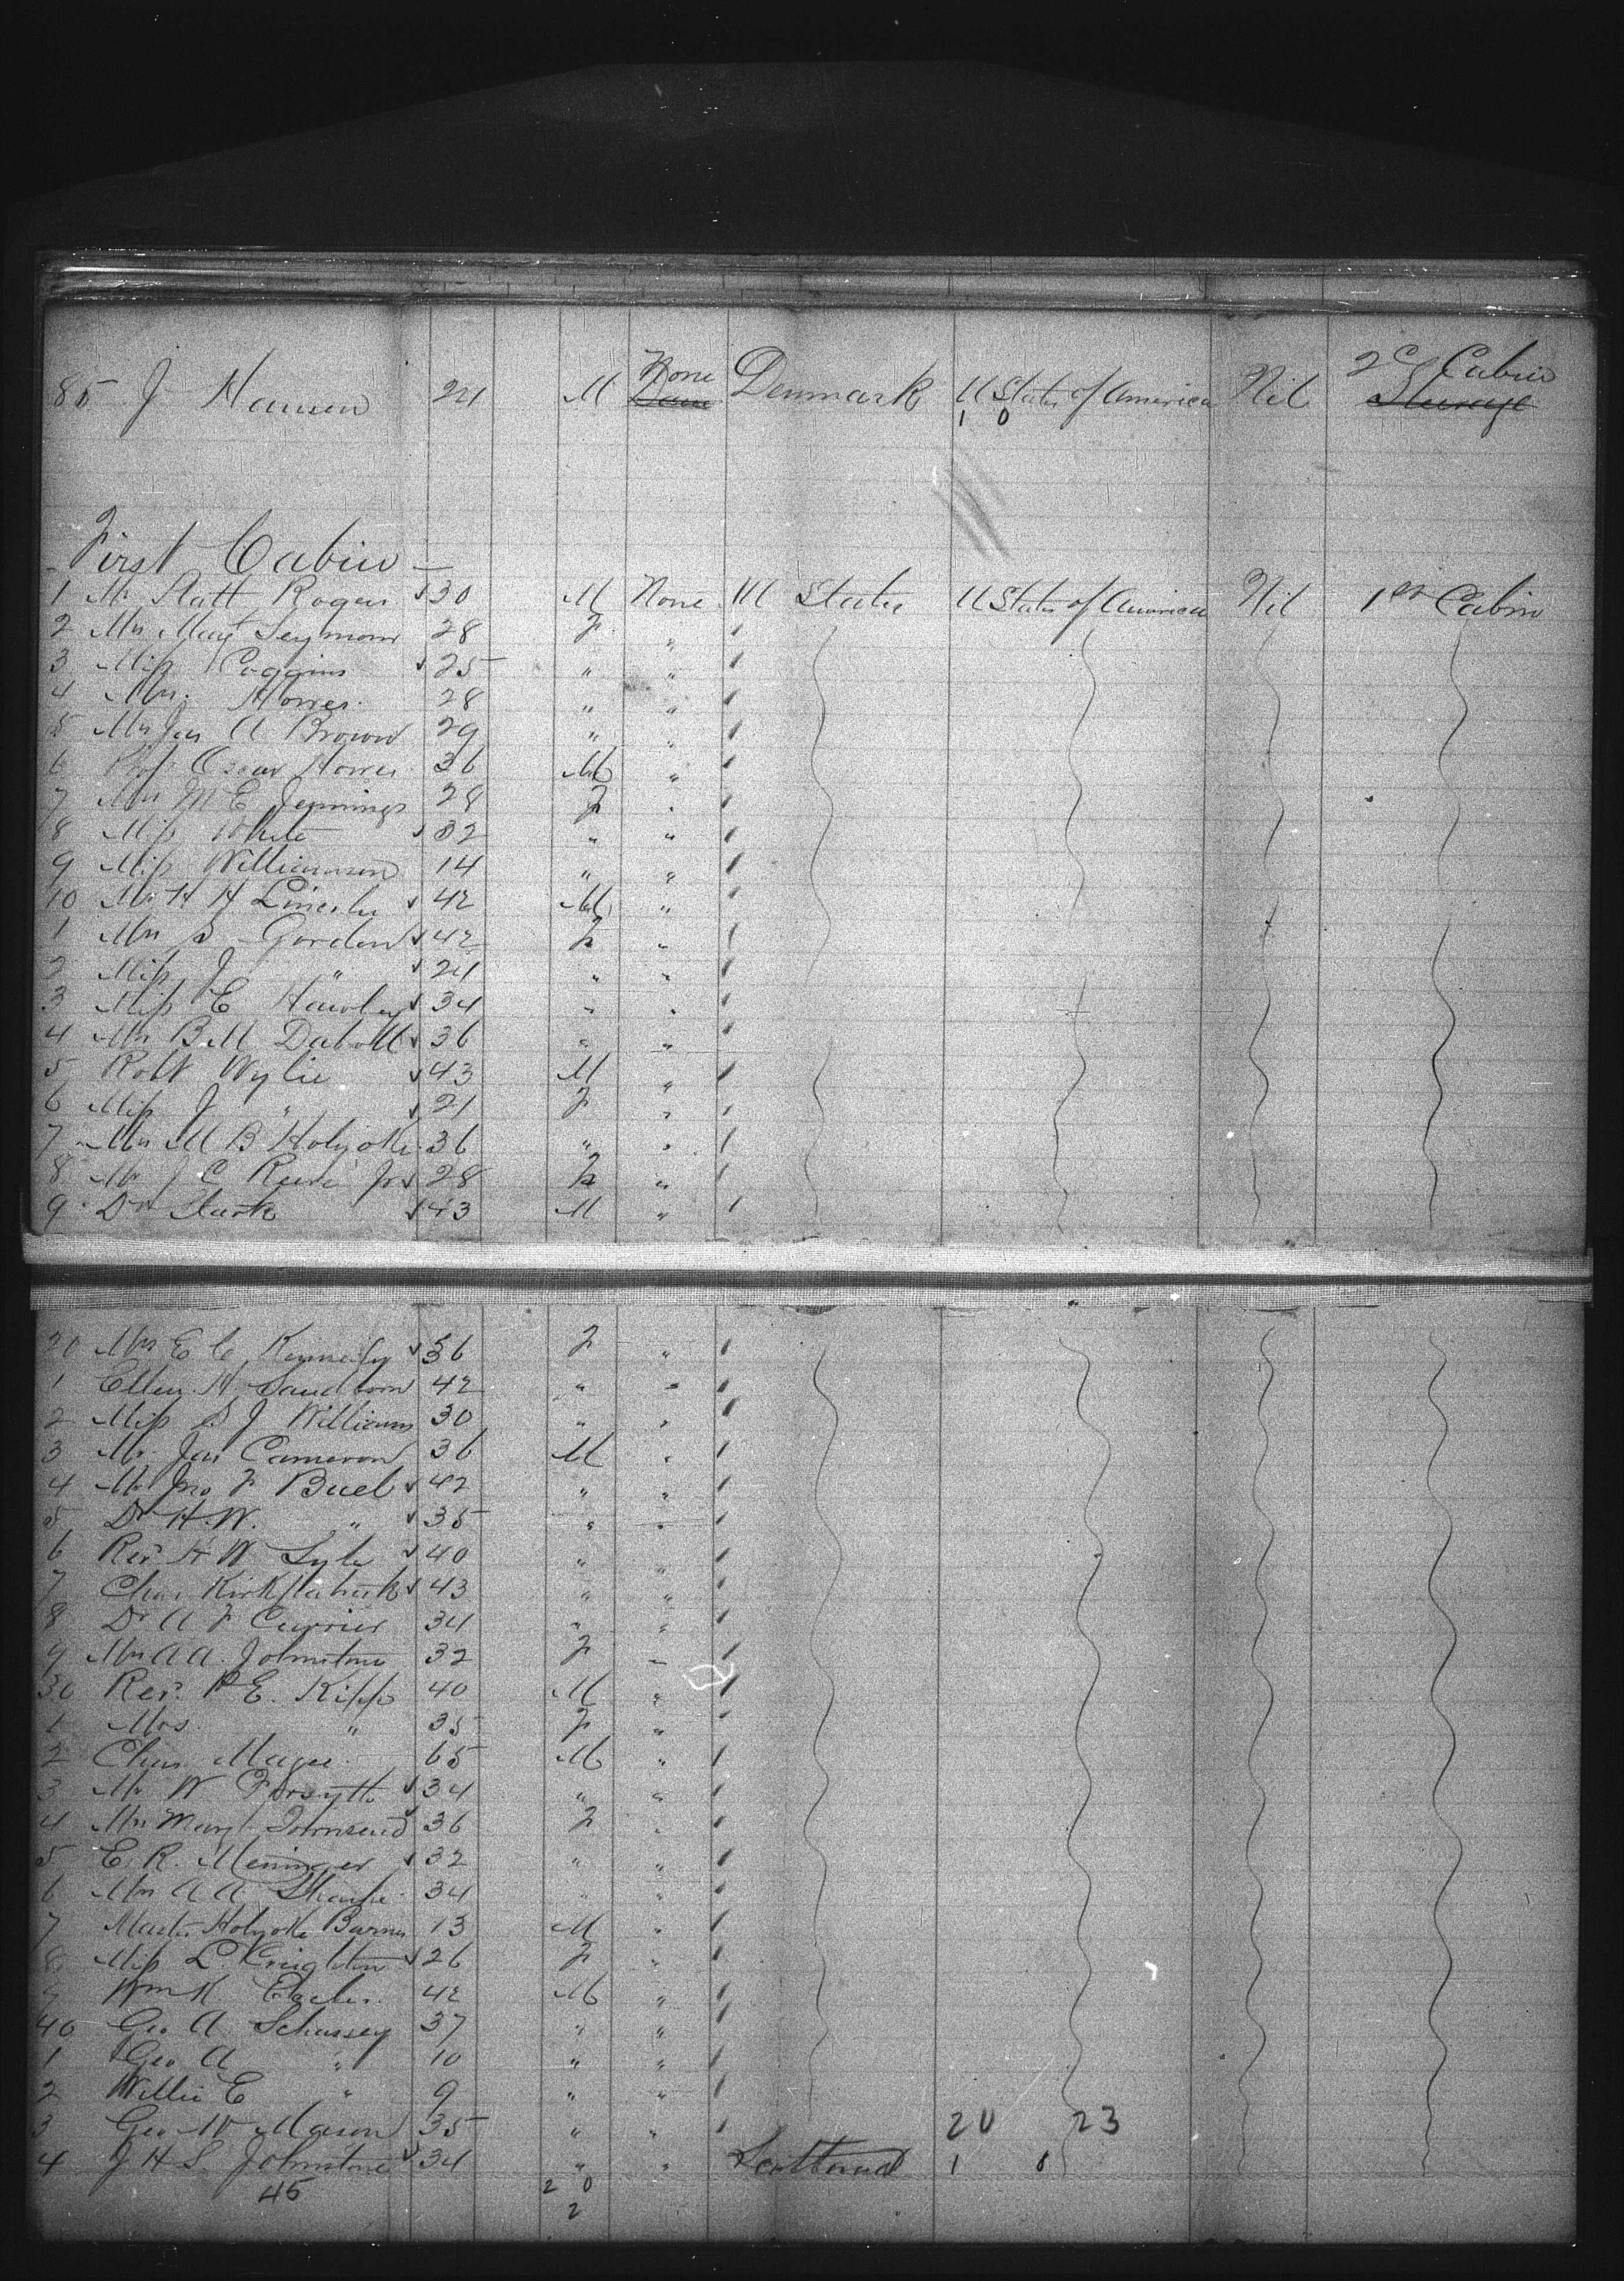 85 J Hansen 24 M None Dane Denmark U States of America Nil 2d Cabin Steerage
1 0
First Cabin
1 Mr Platt Rogers 30 M None U States U States of America Nil 1st Cabin
2 Mrs Mary Seymour 28 F " "
3 Miss Coggins 25 " " "
4 Mrs Howes 28 " " "
5 Mrs Jas A Brown 29 " " "
6 Prof Oscar Howes 36 M " "
7 Mrs M E Jennings 28 F " "
8 Miss White 32 " " "
9 Miss Williamson 14 " " "
10 Mr H H 42 M " "
1 Mrs S Gordon 42 F " "
2 Miss J " 24 " " "
3 Miss E Hawley 34 " " "
4 Mrs B M Daboll 36 " " "
5 Robt Wylie 43 M " "
6 Miss J " 21 F " "
7 Mrs M B Holyoke 36 " " "
8 J C Reeve Jr 28 " "
9 Dr 43 M " "
20 Mrs E C Kennedy 36 F " "
1 Ellen H Sandborn 42 " " "
2 Miss S J Williams 30 " " "
3 Mr Jas Cameron 36 M " "
4 Mr Jno F Buel 42 " " "
5 Dr H. W. " 35 " " "
6 Rev H W 40 " " "
7 Chas Kirkpatrick 43 " " "
8 Dr A F Currier 34 " " "
9 Mrs A A. Johnstone 32 F " "
30 Rev. P E. Kipp 40 M " "
1 Mrs. " 35 F " "
2 Chas Magee 65 M " "
3 Mr W Forsyth 34 " " "
4 Mrs Mary Townsend 36 F " "
5 E. R. 32 " " "
6 Mrs A A Sharpe 34 " " "
7 Master Holyoke Barnes 13 M " "
8 Miss L. Creighton 26 F " "
9 Wm K 42 M " "
40 Geo A 37 " " "
1 Geo A " 10 " " "
2 Willie E " 9 " " "
3 Geo W Mason 35 " " " 20 23
4 J H S. Johnstone 34 " " Scotland 1 0
45 2 0
2